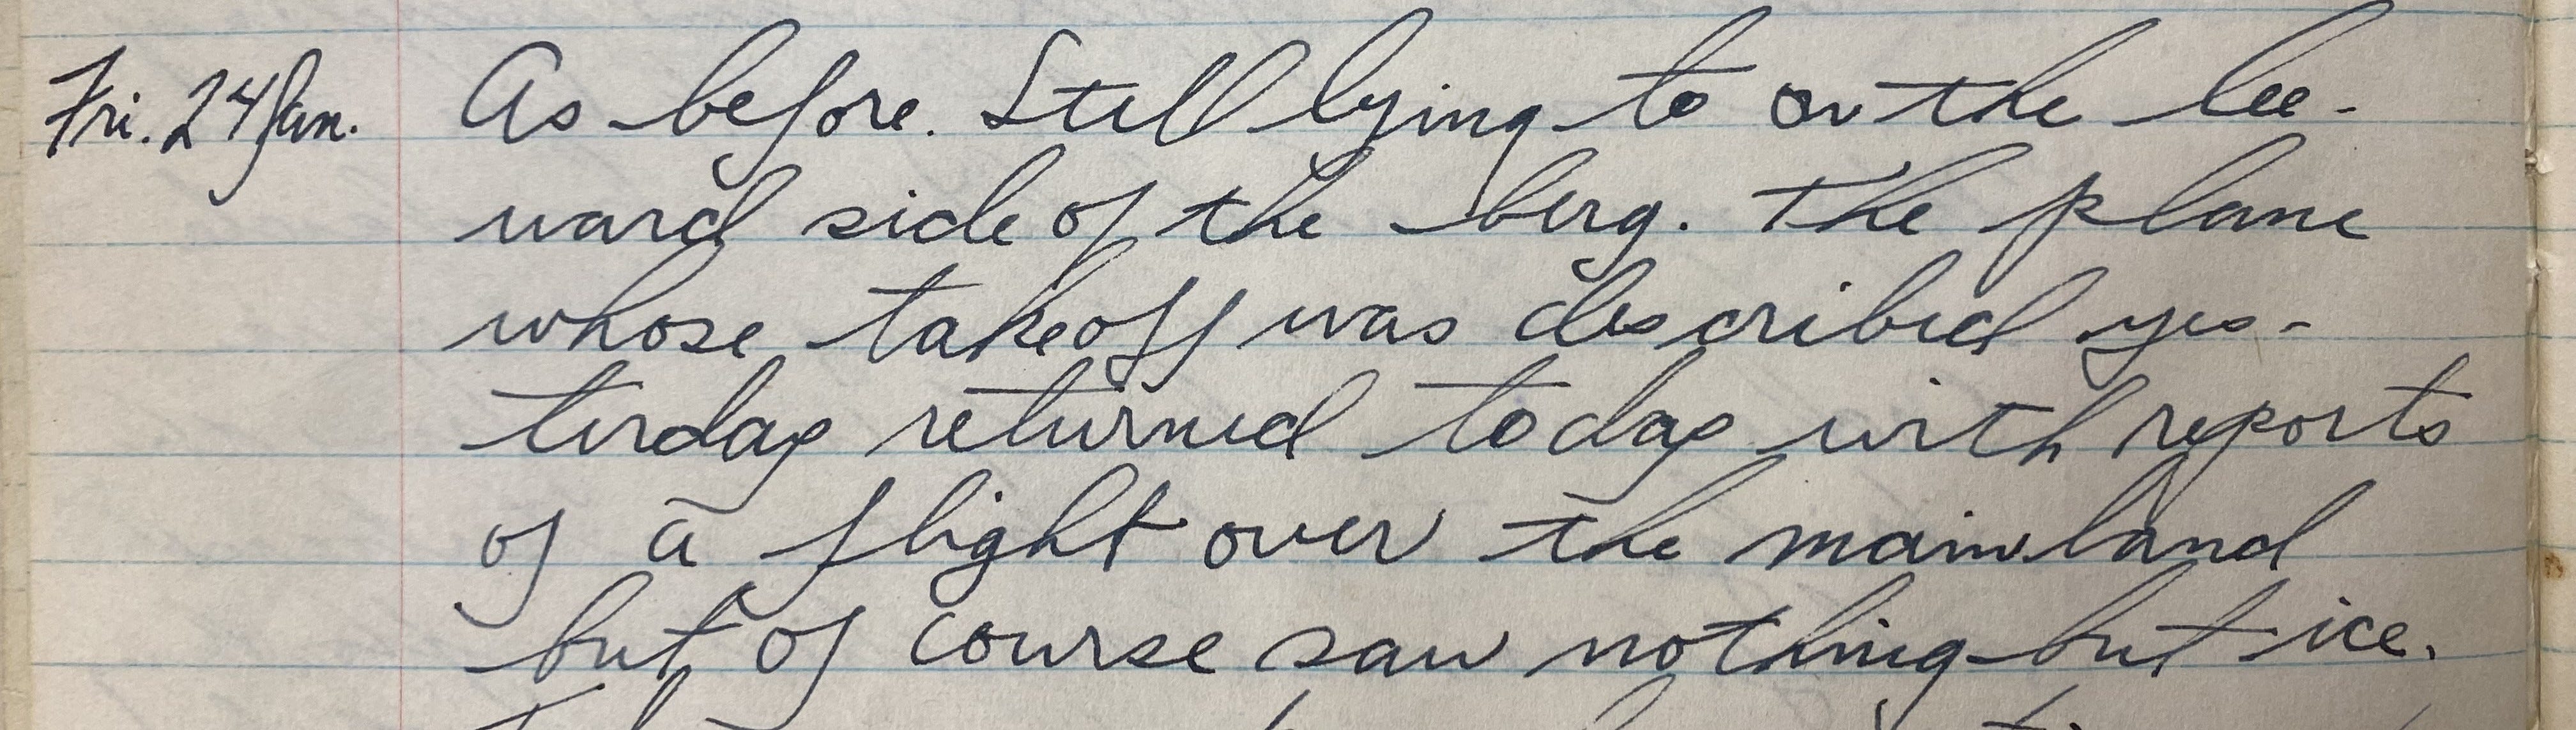 Fri. 24 Jan. As before. Still lying to on the lee-
ward side of the berg. The plane
whose takeoff was described yes-
terday returned today with reports
of a flight over the mainland
but of course saw nothing but ice.